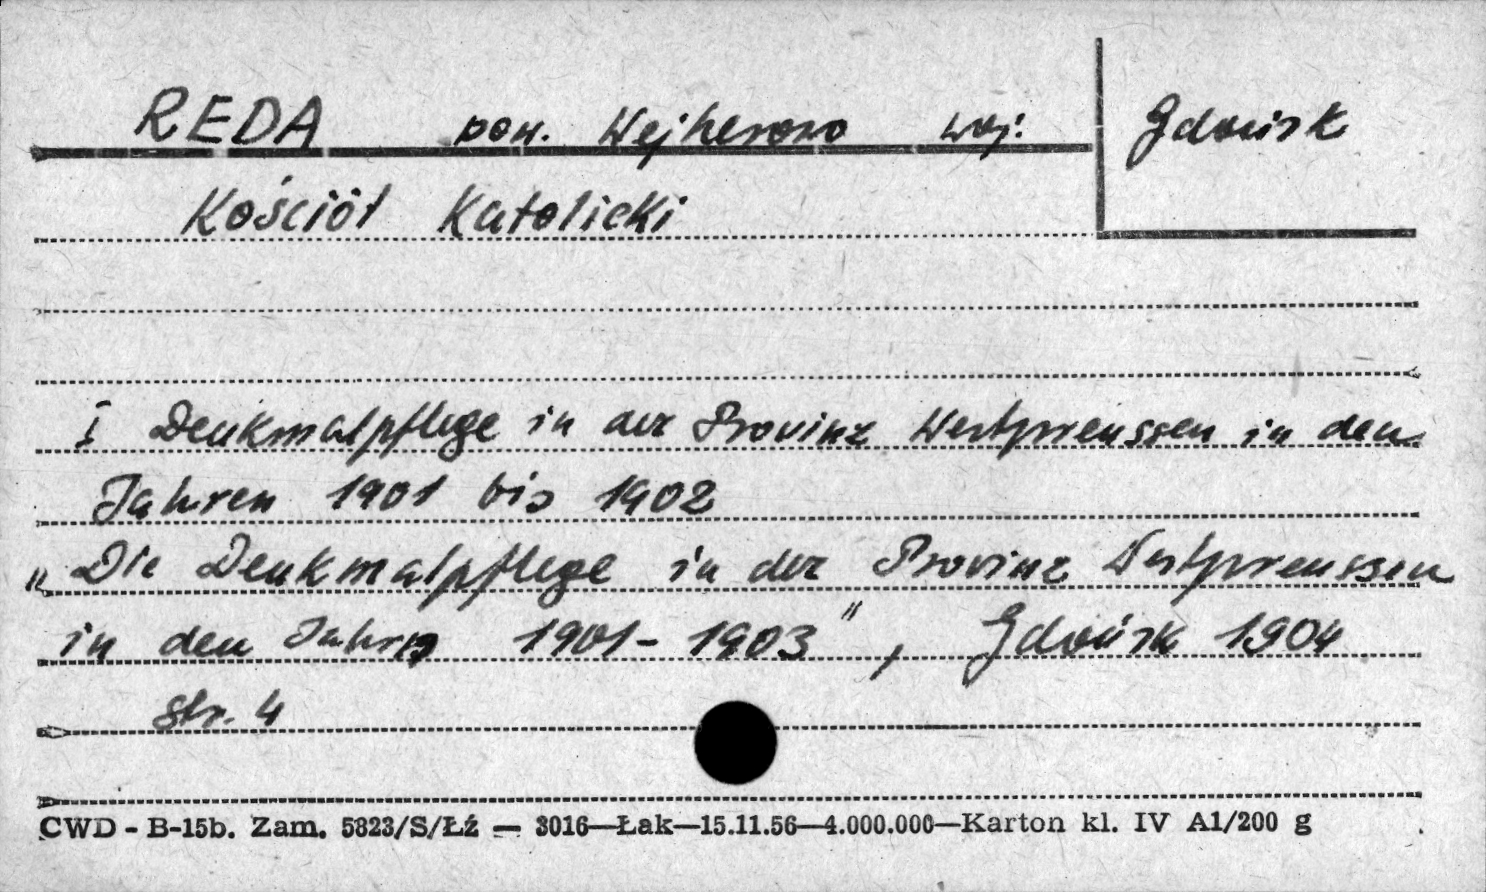 REDA pow. Wejherowo woj. Gdańsk
Kościół Katolicki
I Denkmalpflege in der Provinz Westpreussen in den
Jahren 1901 bis 1902
"Die Denkmalpflege in der Provinz Westpreussen
in den Jahren 1901-1903", Gdańsk 1904
str. 4
CWD - B-15b. Zam. 5823/S/Łź — 3016—Łak—15.11.56—4.000.000—Karton kl. IV A1/200 g